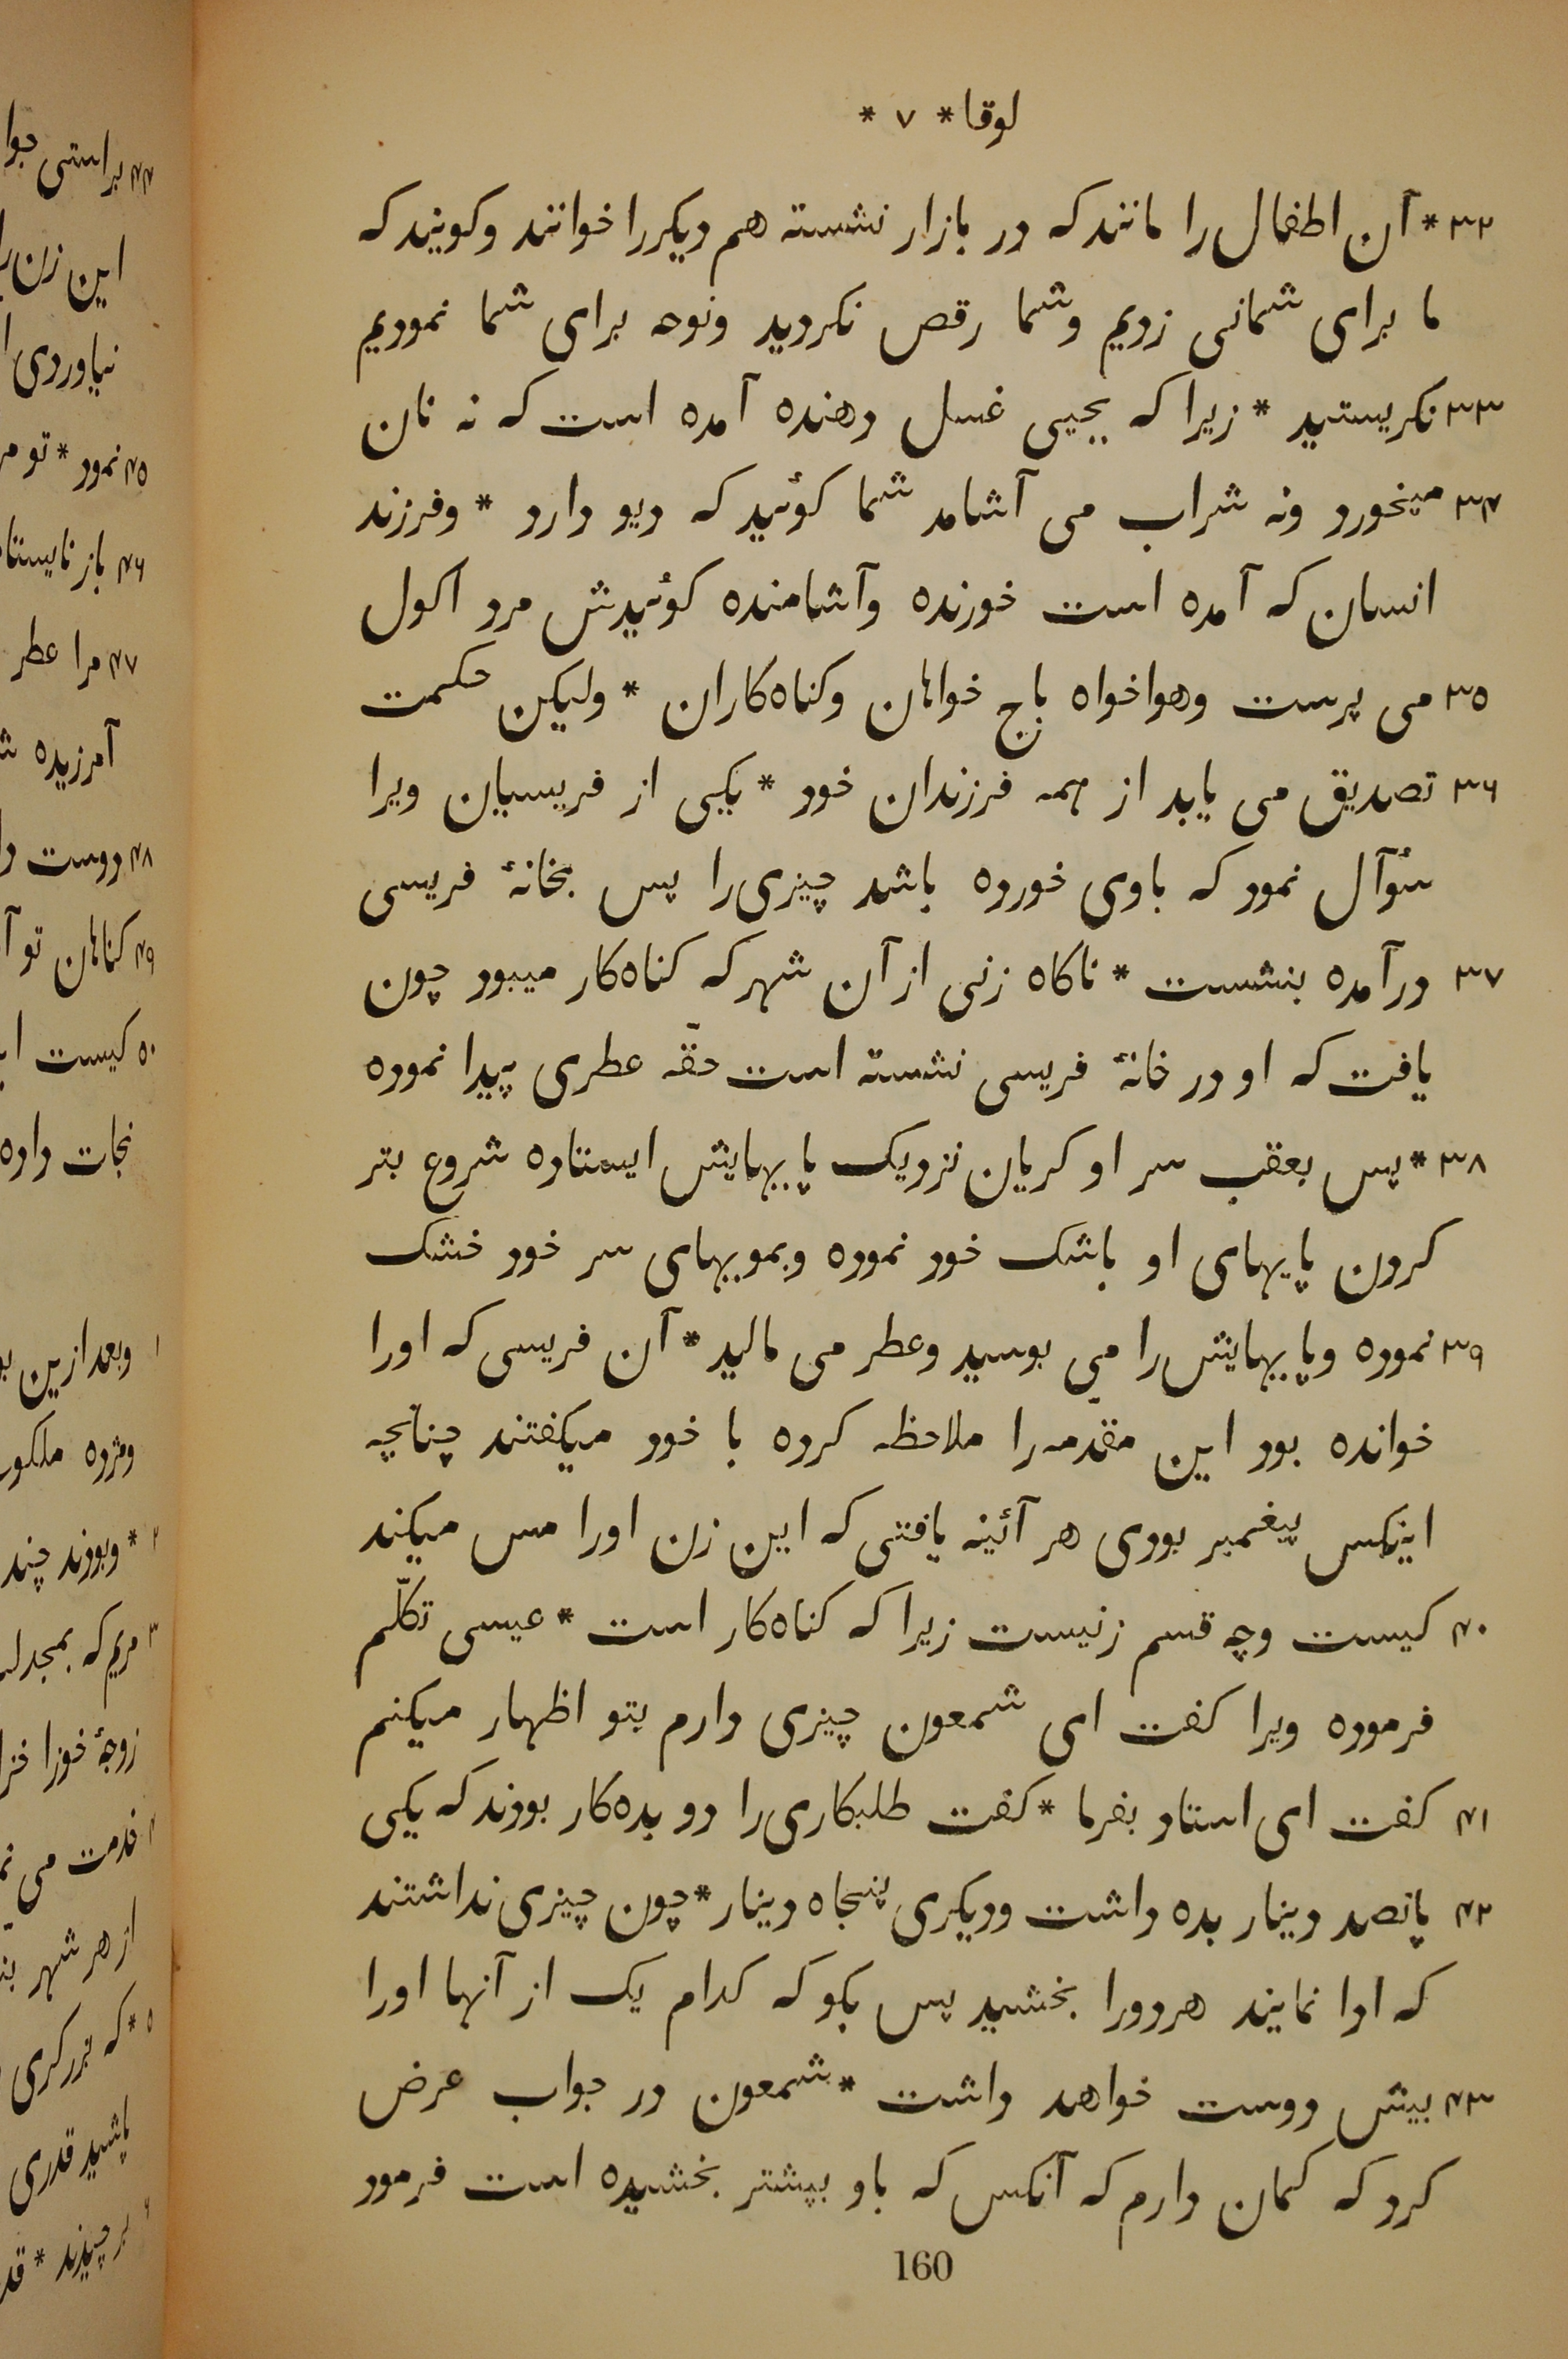 لوقا * ۷ *
۳۲ * آن اطفال را مانند که در بازار نشسته هم دیکررا خوانند وکویند که
ما برای شمانی زدیم وشما رقص نکردید ونوحه برای شما نمودیم
۳۳ نکریستید * زیرا که یحیی غسل دهنده آمده است که نه نان
۳۴ میخورد ونه شراب می آشامد شما کوئید که دیو دارد * وفرزند
انسان که آمده است خورنده وآشامنده کوئیدش مرد اکول
۳۵ می پرست وهواخواه باج خواهان وکناه‌کاران * ولیکن حکمت
۳۶ تصدیق می یابد از همه فرزندان خود * یکی از فریسیان ویرا
سؤآل نمود که باوی خورده باشد چیزی‌را پس بخانهٔ فریسی
۳۷ درآمده بنشست * ناکاه زنی از آن شهر که کناه‌کار میبود چون
یافت که او در خانهٔ فریسی نشسته است حقّه عطری پیدا نموده
۳۸ * پس بعقب سر او کریان نزدیک پایهایش ایستاده شروع بتر
کردن پایهای او باشک خود نموده وبمویهای سر خود خشک
۳۹ نموده وپایهایش را می بوسید وعطر می مالید * آن فریسی که اورا
خوانده بود این مقدّمه‌را ملاحظه کرده با خود میکفتند چنانچه
اینکس پیغمبر بودی هر آئینه یافتی که این زن اورا مس میکند
۴۰ کیست وچه قسم زنیست زیرا که کناه‌کار است * عیسی تکلّم
فرموده ویرا کفت ای شمعون چیزی دارم بتو اظهار میکنم
۴۱ کفت ای استاد بفرما * کفت طلبکاری‌را دو بده‌کار بودند که یکی
۴۲ پانصد دینار بده داشت ودیکری پنجاه دینار * چون چیزی نداشتند
که ادا نمایند هردورا بخشید پس بکو که کدام یک از آنها اورا
۴۳ بیش دوست خواهد داشت * شمعون در جواب عرض
کرد که کمان دارم که آنکس که باو بیشتر بخشیده است فرمود
160
۴۴ براستی
این زن
نیاوردی
۴۵ نمود * تو
۴۶ باز
۴۷ مرا عطر
آمرزیده
۴۸ دوست
۴۹ کناهان تو
۵۰ کیست
نجات داده
۱ وبعد ازین
ومژده
۲ * وبودند چند
۳ مریم که
زوجهٔ خوزا
۴ خدمت می
از هر شهر
۵ * که بزرکری
پاشید قدری
۶ برچیدند *